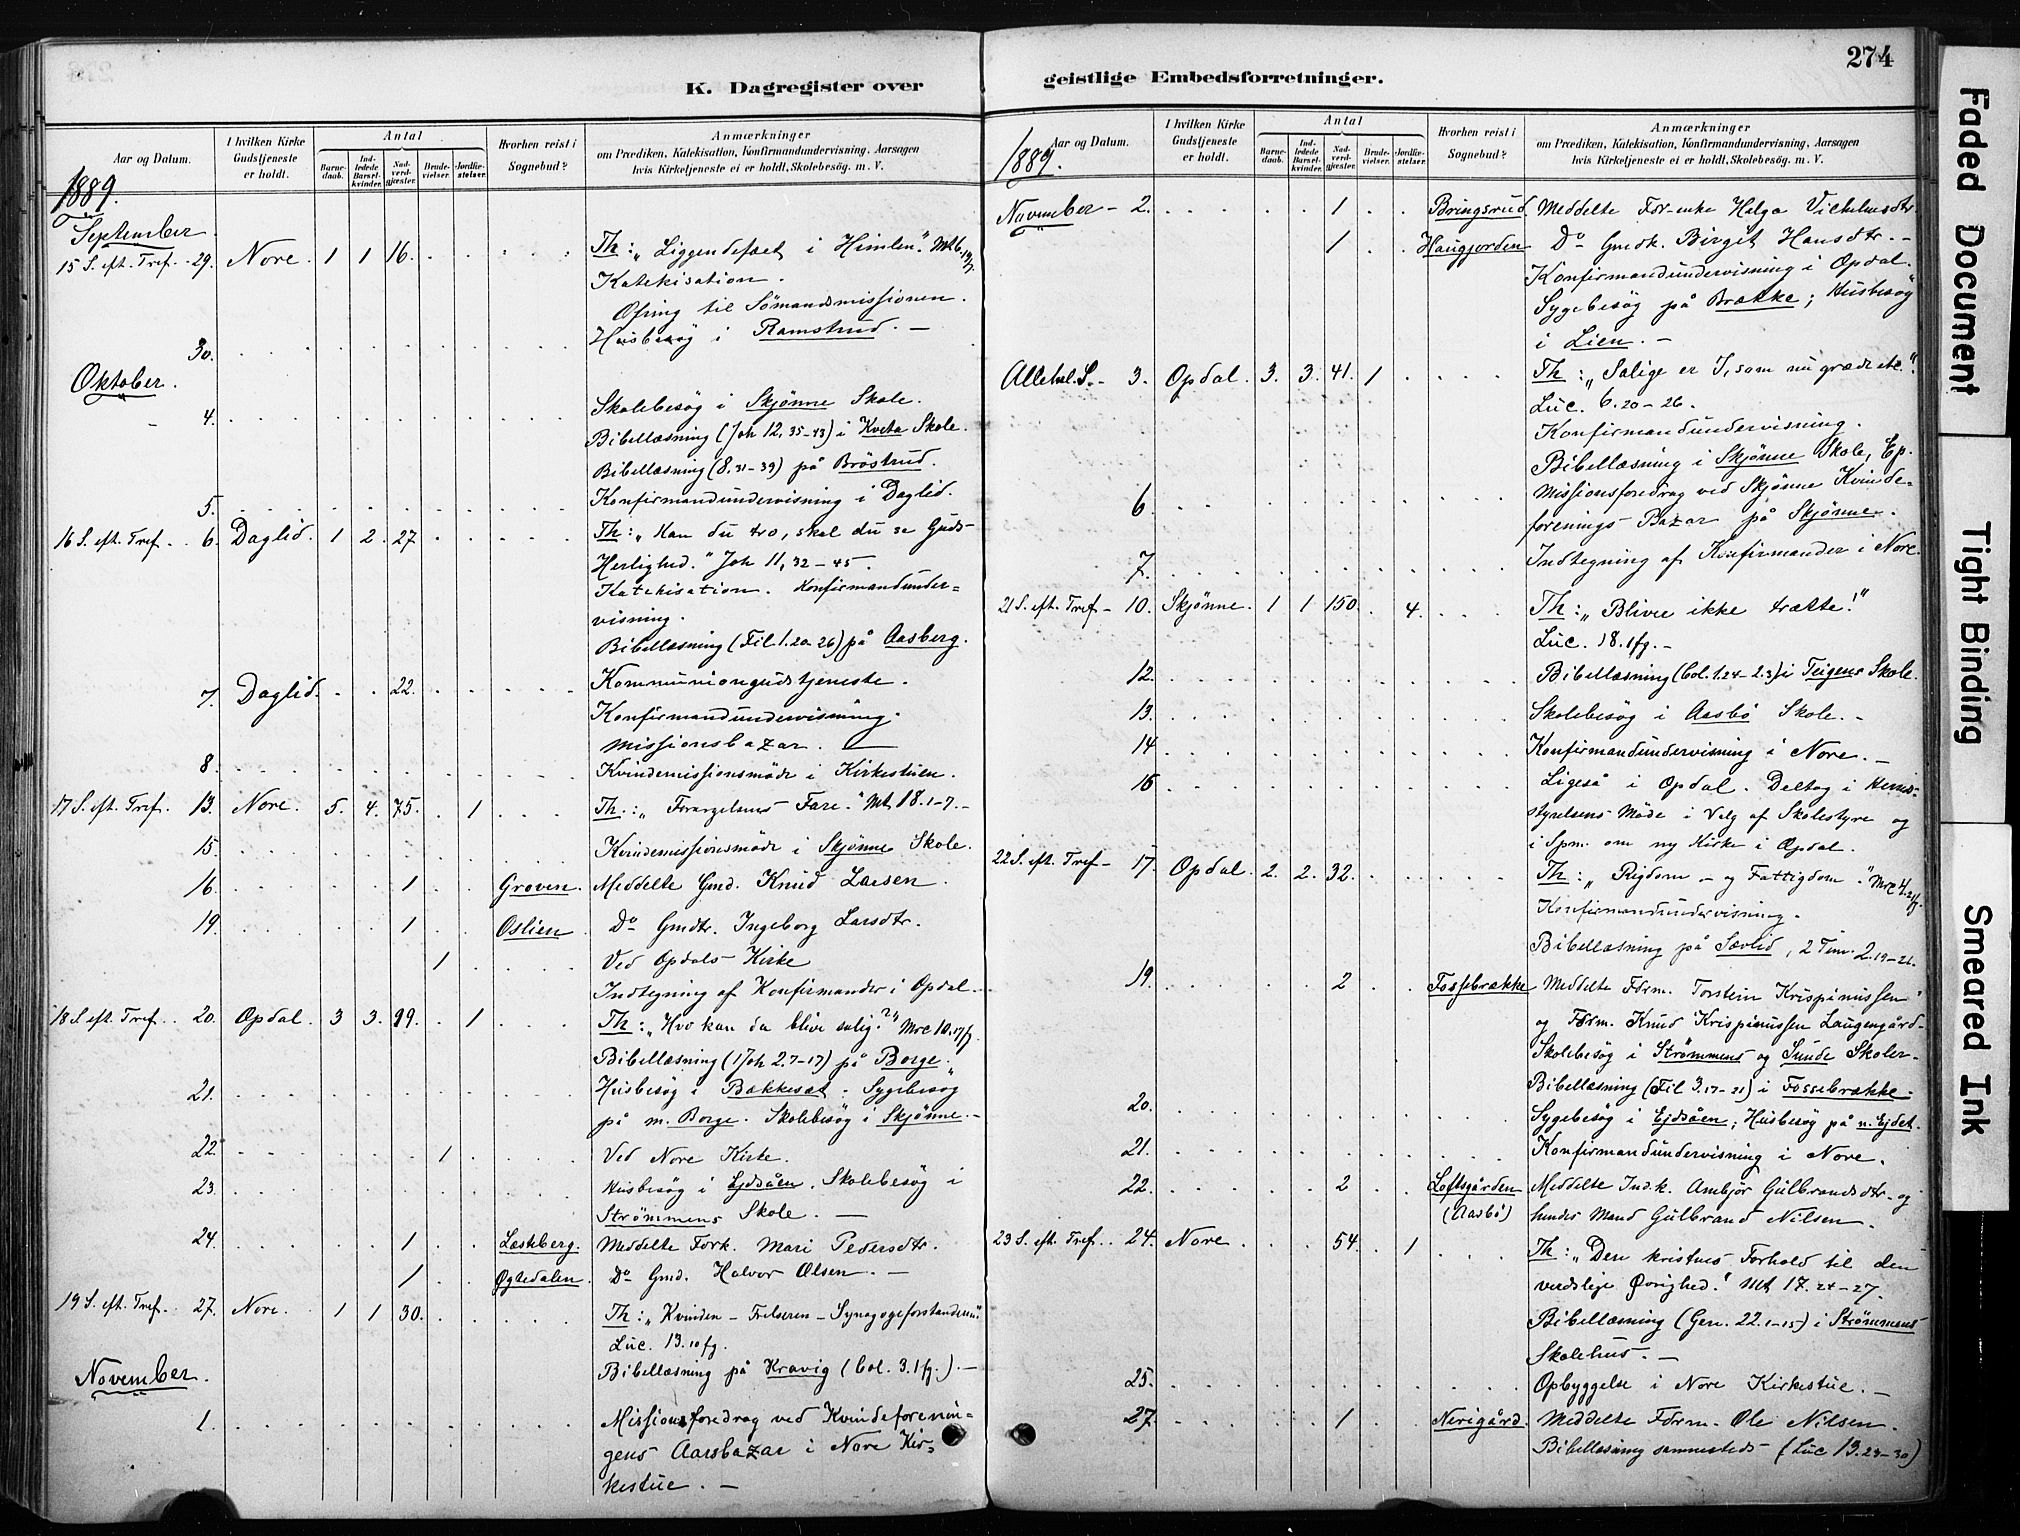 K. Dagregister over
Aar og Datum.
I hvilken Kirke Gudstjeneste er holdt.
Antal
Barnedaab.
Indledede Barselkvinder.
Nadverdgjæster.
Brudevielser.
Jordfæstelser.
Hvorhen reist i Sognebud?
Anmærkninger
om Prædiken, Katekisation, Konfirmandundervisning, Aarsagen
hvis Kirketjeneste ei er holdt, Skolebesøg. m. V.
1889.
September.
15 S. eft. Tref. 29. Nore. 1 1 16. Th: „Liggendefæet i Himlen.“ Mt 6, 19 fg.
Katekisation.
Ofring til Sömandsmissionen.
30. Husbesøg i Ramstrud. —
Oktober.
4. Skolebesøg i Skjönne Skole.
Bibellæsning (Joh 12, 35-43) i Kveta Skole.
Bibellæsning (8, 31-39) på Bröstrud.
5. Konfirmandundervisning i Daglid.
16 S. eft. Tref. 6. Daglid. 1 2. 27 Th: „Kan du tro, skal du se Guds
Herlighed.“ Joh 11, 32-45.
Katekisation. Konfirmandunder-
visning.
Bibellæsning (Fil 1. 20-26) på Aasberg.
7. Daglid. 22. Kommuniongudstjeneste.
Konfirmandundervisning.
Missionsbazar. —
8. Kvindemissionsmöde i Kirkestuen.
17 S. eft. Tref. 13. Nore. 5. 4. 75. 1 Th.: „Forargelsens Fare.“ Mt 18. 1-7. —
15. Kvindemissionsmöde i Skjönne Skole.
16. 1 Groven. Meddelte Gmd. Knud Larsen.
19. 1 Oslien. Do Gmdtr. Ingeborg Larsdtr.
1 Ved Opdals Kirke
Indtegning af Konfirmander i Opdal.
18 S. eft. Tref. 20. Opdal. 3 3. 99. 1 Th: „Hvo kan da blive salig?“ Mrc 10. 17 fg.
Bibellæsning (1 Joh 2. 7-17) på Borge.
21. Husbesøg i Bakkesæt. Sygebesøg
på m. Borge. Skolebesøg i Skjönne. —
22. 1 Ved Nore Kirke.
23. Husbesøg i Ejdsåen. Skolebesøg i
Strömmens Skole. —
24. 1 Læskeberg. Meddelte Fork. Mari Pedersdtr.
1 Øgtedalen. Do Gmd. Halvor Olsen. —
19 S. eft. Tref. 27. Nore. 1 1 30. Th: „Kvinden — Frelseren — Synagogeforstanderen“
Luc. 13. 10 fg.
Bibellæsning på Kravig (Col. 3. 1 fg.). —
November.
1. Missionsforedrag ved Kvindeforenin-
gens Aarsbazar i Nore Kir-
kestue. —
geistlige Embedsforretninger.
274
Aar og Datum.
I hvilken Kirke Gudstjeneste er holdt.
Antal
Barnedaab.
Indledede Barselkvinder.
Nadverdgjæster.
Brudevielser.
Jordfæstelser.
Hvorhen reist i Sognebud?
Anmærkninger
om Prædiken, Katekisation, Konfirmandundervisning, Aarsagen
hvis Kirketjeneste ei er holdt, Skolebesøg. m. V.
1889.
November — 2. 1 Bringsrud Meddelte For. enke Helga Vilhelmsdtr.
1 Haugjorden Do Gmdk. Birget Hansdtr. —
Konfirmandundervisning i Opdal.
Sygebesøg på Brække; Husbesøg
i Lien. —
Allehel. S. — 3. Opdal. 3. 3. 41. 1 Th: „Salige er I, som nu græde etc.“
Luc. 6. 20-26.
Konfirmandundervisning.
Bibellæsning i Skjönne Skole, Ep.
6. Missionsforedrag ved Skjönne Kvinde-
forenings Bazar på Skjönne.
7. Indtegning af Konfirmander i Nore.
21 S. eft. Tref — 10. Skjönne. 1 1 150. 4. Th: „Bliver ikke trætte!“
Luc. 18. 1 fg. —
12. Bibellæsning (Col. 1. 24 - 2. 3) i Teigens Skole.
13. Skolebesøg i Aasbö Skole. —
14 Konfirmandundervisning i Nore. —
16 Ligeså i Opdal. Deltog i Herreds-
styrelsens Møde i Valg af Skolestyre og
i Spm. om ny Kirke i Opdal.
22 S. eft. Tref — 17. Opdal. 2. 2. 32. Th: „Rigdom — og Fattigdom.“ Mrc
Konfirmandundervisning.
Bibellæsning på Sævlid, 2 Tim. 2. 19-26.
19. 2 Fossebrække Meddelte Förm. Torstein Krispinussen
og Förm. Knud Krispinussen Laugengård.
Skolebesøg i Strömmens og Sunde Skoler.
Bibellæsning (Fil 3. 17-21) i Fossebrække.
20. Sygebesøg i Ejdsåen; Husbesøg på n. Ejdet.
21. Konfirmandundervisning i Nore.
22. 2 Loftsgården (Aasbö) Meddelte Ind. k. Ambjör Gulbrandsdtr. og
hendes Mand Gulbrand Nilsen.
23 S. eft. Tref. 24. Nore. 54. 1 Th: „Den kristnes Forhold til den
verdslige Øvrighed.“ Mt 17. 24-27.
Bibellæsning (Gen. 22. 1-15) i Strömmens
Skolehus. —
25. Opbyggelse i Nore Kirkestue. —
27. 1 Nerigård. Meddelte Förm. Ole Nilsen.
Bibellæsning sammesteds (Luc 13. 23-30)
Faded Document
Tight Binding
Smeared Ink